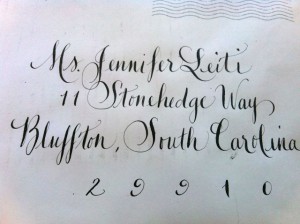 Ms. Jennifer Leiti
11 Stonehedge Way
Bluffton, South Carolina
2 9 9 1 0